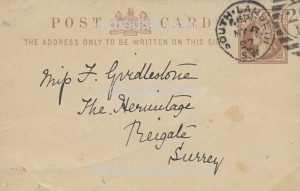 POST CARD
THE ADDRESS ONLY TO BE WRITTEN ON THIS SIDE
SOUTH-LAMBETH
S.W
Miss F. Girdlestone
The Hermitage
Reigate
Surrey